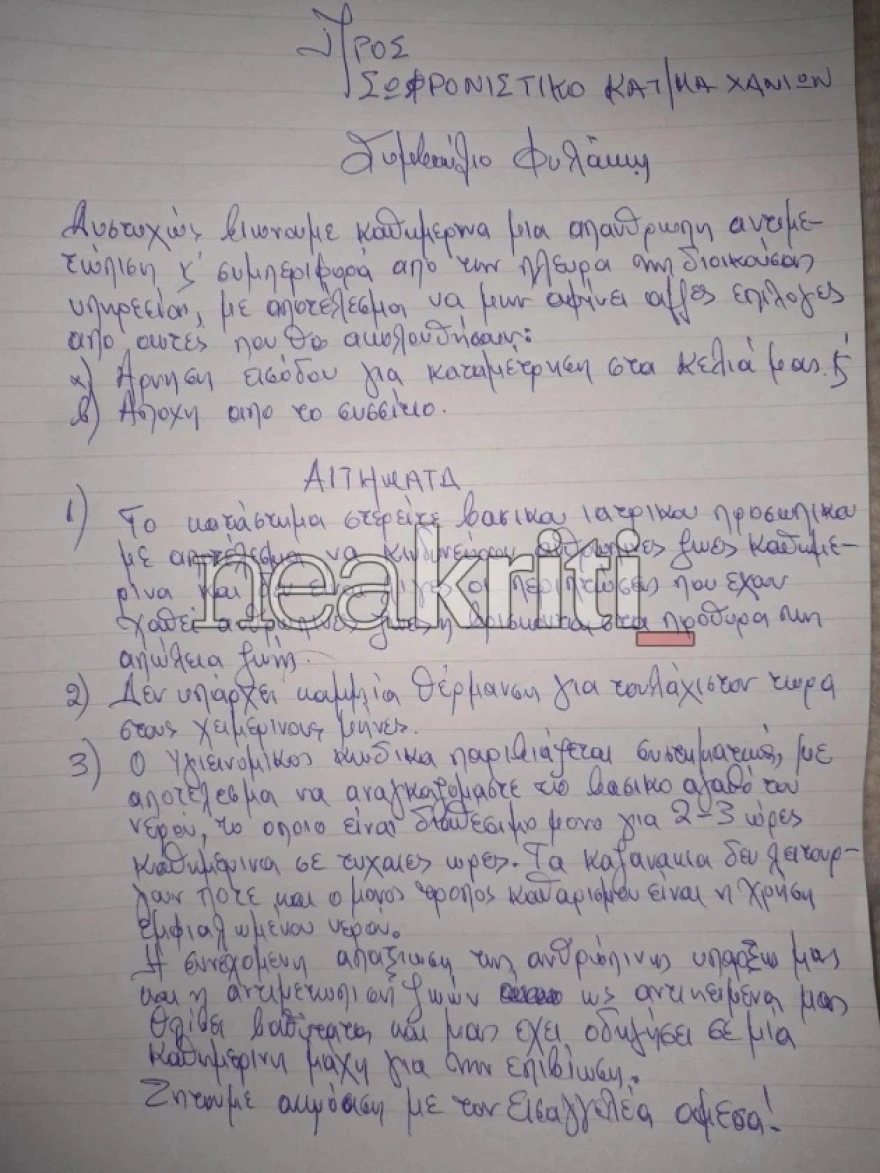 Προς
ΣΩΦΡΟΝΙΣΤΙΚΟ ΚΑΤ/ΜΑ ΧΑΝΙΩΝ
Συμβούλιο Φυλακής
Δυστυχώς βιωνουμε καθημερινα μια απανθρωπη αντιμε-
τώπιση & συμπεριφορά από την πλευρα της διοικούσας
υπηρεσίας, με αποτέλεσμα να μην αφήνει αλλες επιλογες
απο αυτές που θα ακολουθήσουν:
α) Αρνηση εισόδου για καταμέτρηση στα κελιά μας. &
β) Αποχη απο το συσσίτιο.
ΑΙΤΗΜΑΤΑ
1) Το κατάστημα στερείτε βασικου ιατρικου προσωπικου
με αποτέλεσμα να κινδυνεύουν ανθρωπινες ζωες καθημε-
ρινα και δεν ειναι λιγες οι περιπτωσεις που εχουν
χαθεί ανθρωπινες ζωες η βρισκονται στα προθυρα της
απώλεια ζωής.
neakriti
2) Δεν υπάρχει καμμία θέρμανση για τουλάχιστον τωρα
στους χειμερινους μήνες.
3) Ο υγιεινομικος κωδικα παραβιάζεται συστηματικώς, με
αποτέλεσμα να αναγκαζομαστε το βασικο αγαθο του
νερου, το οποιο είναι διαθεσιμο μονο για 2-3 ώρες
καθημερινα σε τυχαιες ωρες. Τα καζανακια δεν λειτουρ-
γουν ποτε και ο μονος τροπος καθαρισμου είναι η χρήση
εμφιαλωμενου νερου.
Η συνεχομενη απαξιωση της ανθρώπινης υπαρξω μας
και η αντιμετωπιση ζωών ως αντικειμενα μας
θλίβει βαθύτατα και μας εχει οδηγήσει σε μία
καθημερινη μάχη για την επιβίωση.
Ζητουμε ακρόαση με τον Εισαγγελέα αμεσα!